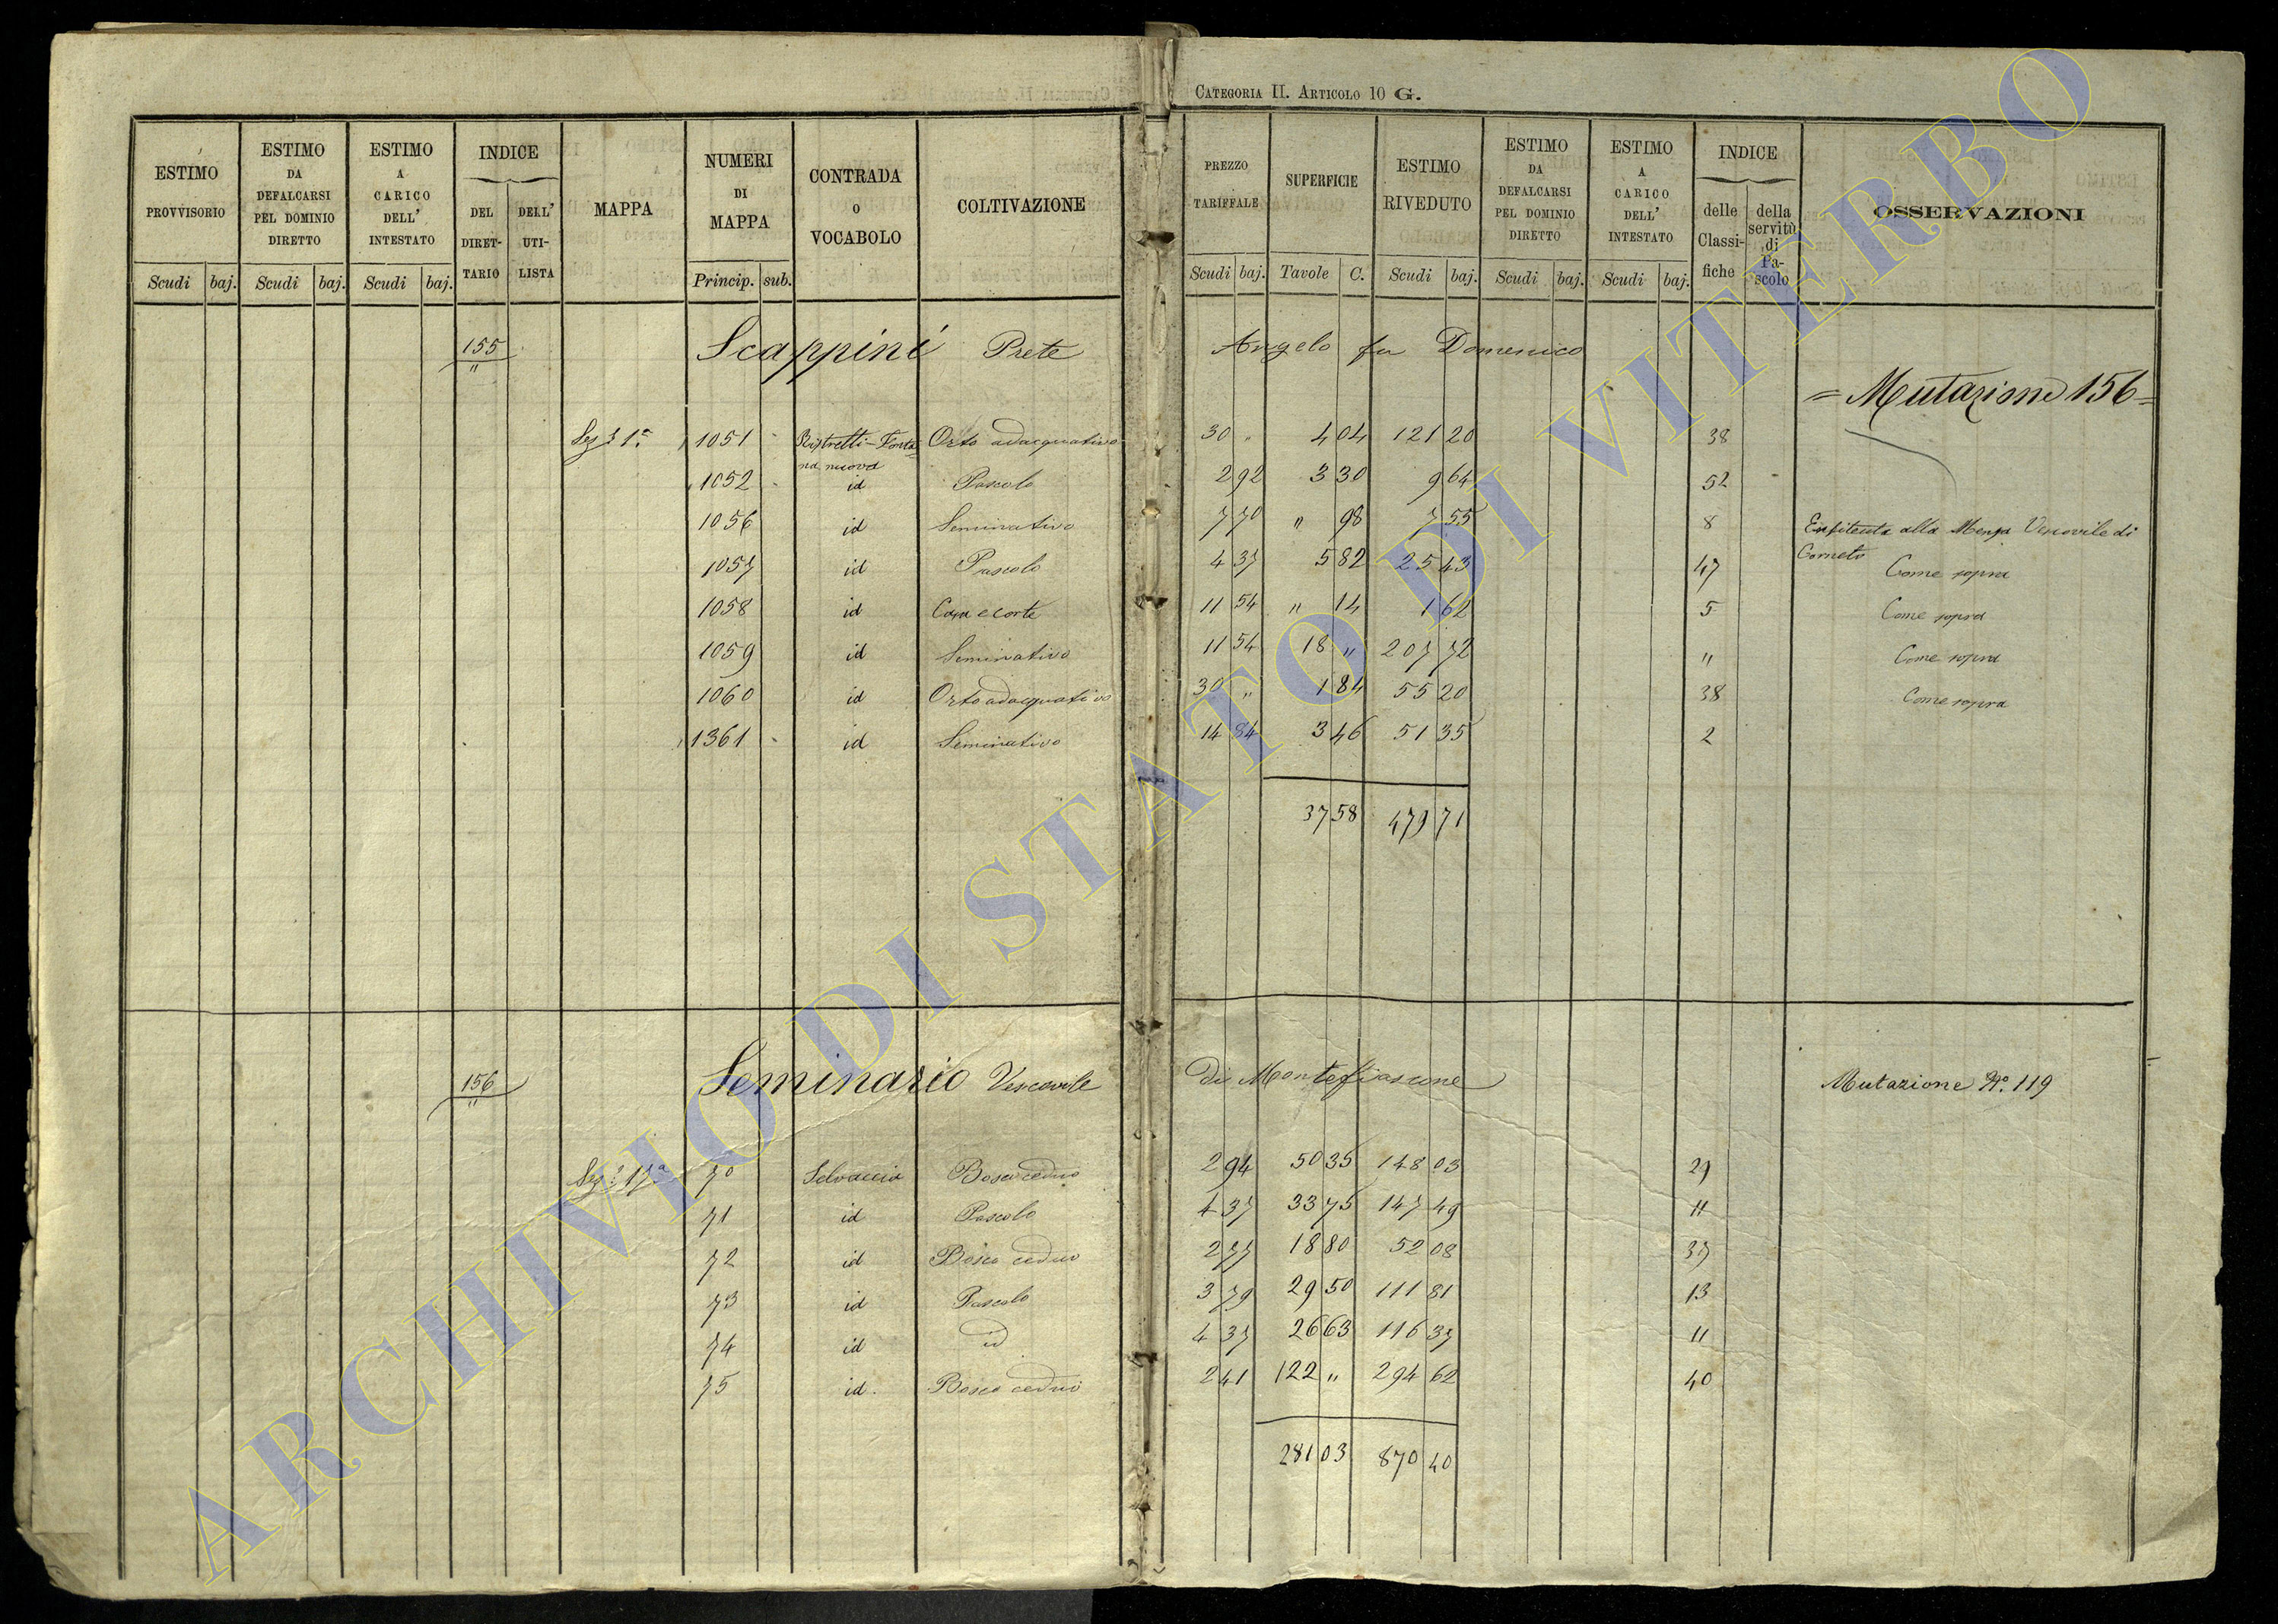 CATEGORIA II. ARTICOLO 10 G.
ESTIMO PROVVISORIO Scudi baj.
ESTIMO DA DEFALCARSI PEL DOMINIO DIRETTO Scudi baj.
ESTIMO A CARICO DELL' INTESTATO Scudi baj.
INDICE DEL DIRET-TARIO DELL' UTI-LISTA
MAPPA
NUMERI DI MAPPA Princip. sub.
CONTRADA O VOCABOLO
COLTIVAZIONE
PREZZO TARIFFALE Scudi baj.
SUPERFICIE Tavole C.
ESTIMO RIVEDUTO Scudi baj.
ESTIMO DA DEFALCARSI PEL DOMINIO DIRETTO Scudi baj.
ESTIMO A CARICO DELL' INTESTATO Scudi baj.
INDICE delle Classi-fiche della servitù di Pa-scolo
OSSERVAZIONI
155 Scappini Prete Angelo fu Domenico
= Mutazione 156 =
Sez.e 1a 1051 Ristretti - Fonta= Orto adacquativo 30 " 4 04 121 20 38
na nuova
1052 id Pascolo 2 92 3 30 9 64 52
1056 id Seminativo 7 70 " 98 7 55 8 Enfiteuta alla Mensa Vescovile di
Corneto
1057 id Pascolo 4 37 5 82 25 43 47 Come sopra
1058 id Casa e corte 11 54 " 14 1 62 5 Come sopra
1059 id Seminativo 11 54 18 " 207 72 " Come sopra
1060 id Orto adacquativo 30 " 1 84 55 20 38 Come sopra
1361 id Seminativo 14 84 3 46 51 35 2
37 58 479 71
156 Seminario Vescovile di Montefiascone Mutazione No. 119
Sez.e 17a 70 Selvaccia Bosco ceduo 2 94 50 35 148 03 29
71 id Pascolo 4 37 33 75 147 49 11
72 id Bosco ceduo 2 77 18 80 52 08 37
73 id Pascolo 3 79 29 50 111 81 13
74 id id 4 37 26 63 116 37 11
75 id. Bosco ceduo 2 41 122 " 294 62 40
281 03 870 40
ARCHIVIO DI STATO DI VITERBO